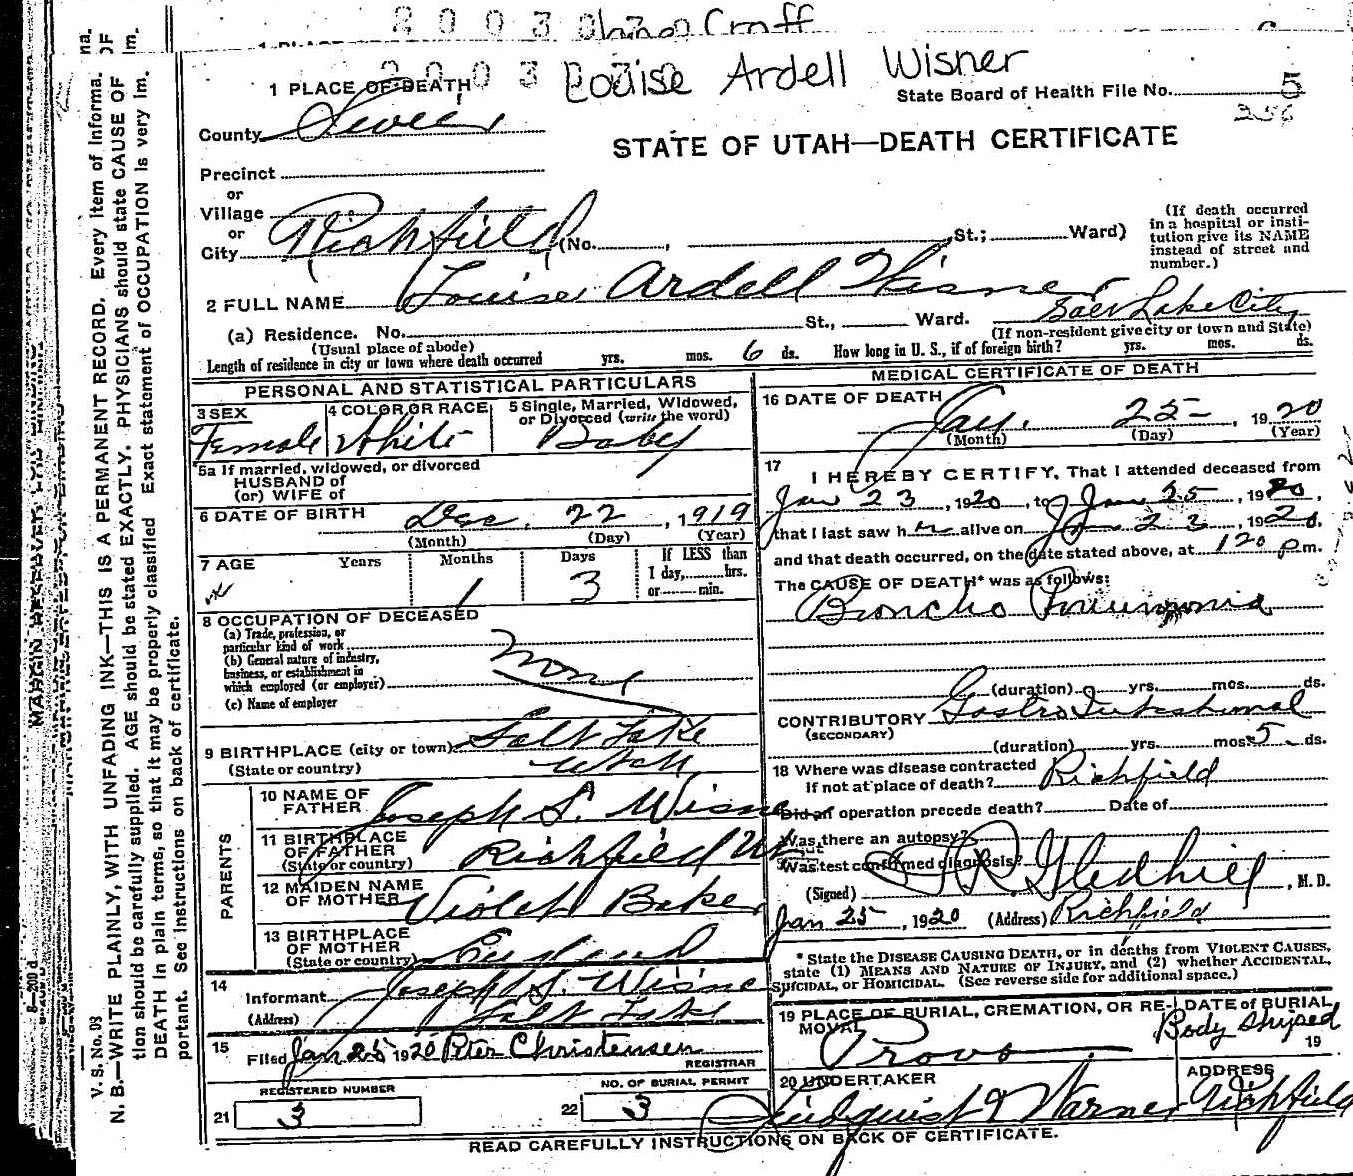 2003
Craff
na.
OF
Im.
2003 Louise Ardell Wisner
1 PLACE OF DEATH
State Board of Health File No. 5
256
County Sevier
STATE OF UTAH—DEATH CERTIFICATE
Precinct
or
Village
or
City Richfield (No. , St.; Ward)
(If death occurred
in a hospital or insti-
tution give its NAME
instead of street and
number.)
2 FULL NAME Louise Ardell Wisner
(a) Residence. No. St., Ward. Salt Lake City
(Usual place of abode)
(If non-resident give city or town and State)
Length of residence in city or town where death occurred yrs. mos. 6 ds. How long in U. S., if of foreign birth? yrs. mos. ds.
PERSONAL AND STATISTICAL PARTICULARS
3 SEX
Female
4 COLOR OR RACE
White
5 Single, Married, Widowed,
or Divorced (write the word)
Baby
5a If married, widowed, or divorced
HUSBAND of
(or) WIFE of
6 DATE OF BIRTH Dec. 22, 1919
(Month) (Day) (Year)
7 AGE Years Months Days If LESS than
1 day, hrs.
or min.
1 3
8 OCCUPATION OF DECEASED
(a) Trade, profession, or
particular kind of work
(b) General nature of industry,
business, or establishment in
which employed (or employer)
None
(c) Name of employer
9 BIRTHPLACE (city or town) Salt Lake
(State or country) Utah
PARENTS
10 NAME OF
FATHER Joseph S. Wisner
11 BIRTHPLACE
OF FATHER
(State or country) Richfield Ut
12 MAIDEN NAME
OF MOTHER Violet Baker
13 BIRTHPLACE
OF MOTHER
(State or country) England
14
Informant Joseph S. Wisne
(Address) Salt Lake
15
Filed Jan 25 1920 Peter Christensen
REGISTRAR
REGISTERED NUMBER
21 3
NO. OF BURIAL PERMIT
22 3
MEDICAL CERTIFICATE OF DEATH
16 DATE OF DEATH
Jan. 25, 1920
(Month) (Day) (Year)
17
I HEREBY CERTIFY, That I attended deceased from
Jan 23, 1920, to Jan 25, 1920,
that I last saw her alive on Jan 23, 1920.
and that death occurred, on the date stated above, at 120 p m.
The CAUSE OF DEATH* was as follows:
Broncho Pneumonia
(duration) yrs. mos. ds.
CONTRIBUTORY Gastro Intestinal
(SECONDARY)
(duration) yrs. mos. 5 ds.
18 Where was disease contracted
If not at place of death? Richfield
Did an operation precede death? Date of
Was there an autopsy?
What test confirmed diagnosis?
(Signed) Gledhill, M. D.
Jan 25, 1920 (Address) Richfield
* State the DISEASE CAUSING DEATH, or in deaths from VIOLENT CAUSES,
state (1) MEANS AND NATURE OF INJURY, and (2) whether ACCIDENTAL,
SUICIDAL, or HOMICIDAL. (See reverse side for additional space.)
19 PLACE OF BURIAL, CREMATION, OR RE-
MOVAL
Provo
DATE of BURIAL
Body Shiped
19
20 UNDERTAKER
Lindquist & Warner
ADDRESS
Richfield
READ CAREFULLY INSTRUCTIONS ON BACK OF CERTIFICATE.
MARGIN RESERVED FOR BINDING
V. S. No. 98
N. B.—WRITE PLAINLY, WITH UNFADING INK—THIS IS A PERMANENT RECORD. Every item of informa-
tion should be carefully supplied. AGE should be stated EXACTLY. PHYSICIANS should state CAUSE OF
DEATH in plain terms, so that it may be properly classified. Exact statement of OCCUPATION is very im-
portant. See instructions on back of certificate.